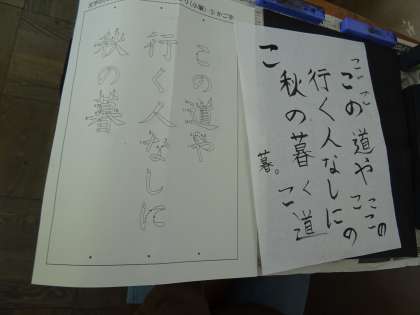 この道や
行く人なしに
秋の暮
こ
ここ
この道や ここの
行く人なしにの
秋の暮く道
こ
こ
暮。